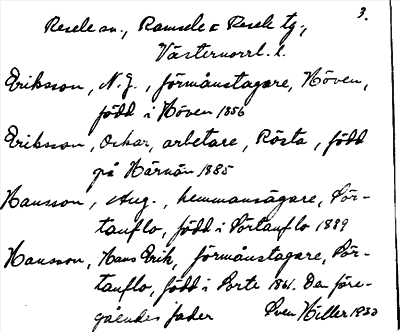 3.
Resele sn., Ramsele & Resele tg.,
Västernorrl. l.
Eriksson, N. J., förmånstagare, Höven,
född i Höven 1856
Eriksson, Oskar, arbetare, Rösta, född
på Härnön 1885
Hansson, Aug., hemmansägare, Tör-
tanflo, född i Förtanflo 1889
Hansson, Hans Erik, förmånstagare, För-
tanflo, född i Forte 1861. Den före-
gåendes fader Sven Hiller 1930